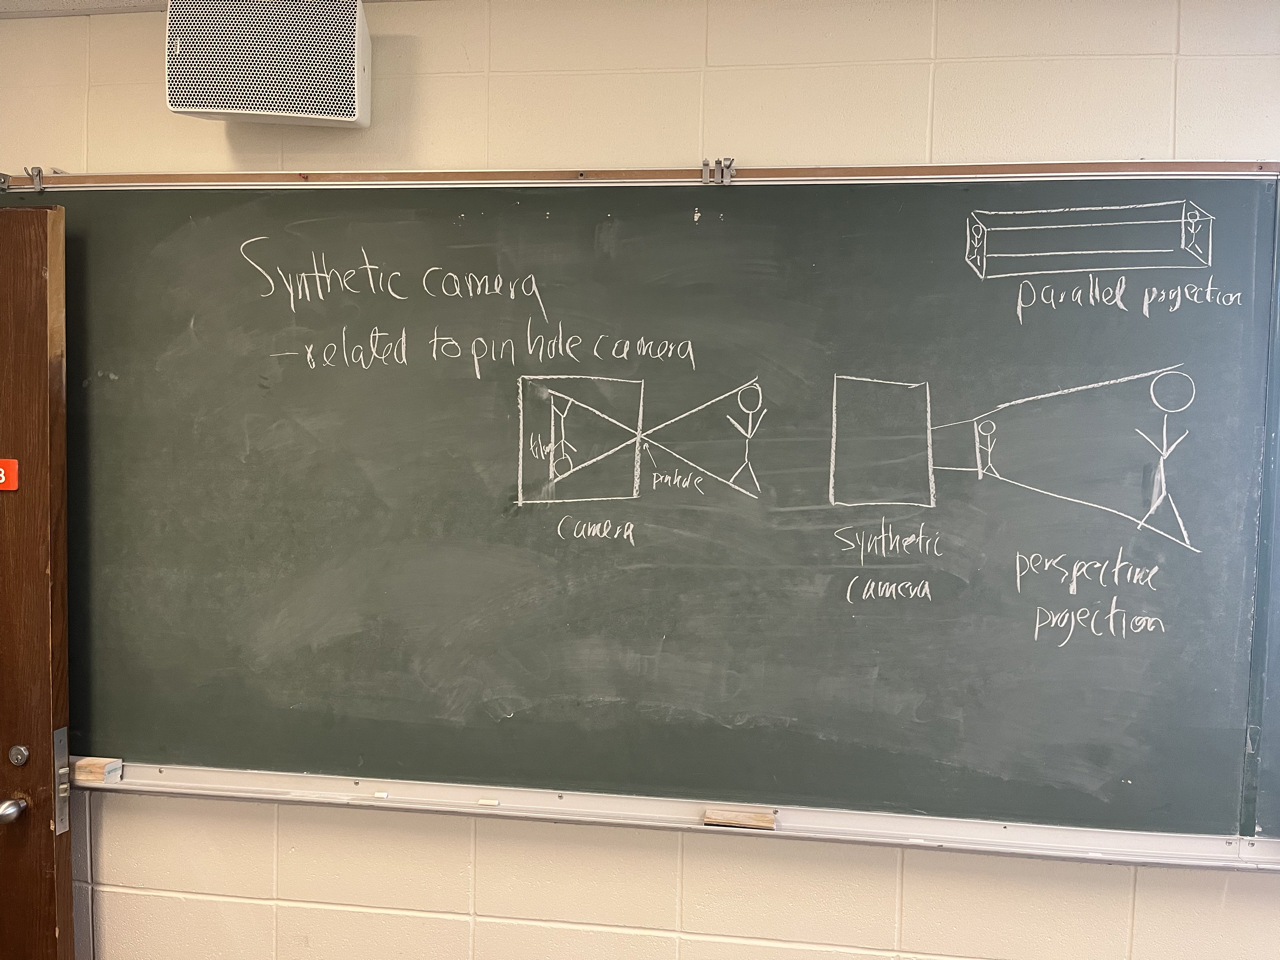 Synthetic camera
- related to pin hole camera
parallel projection
film
pinhole
camera
Synthetic
camera
perspective
projection